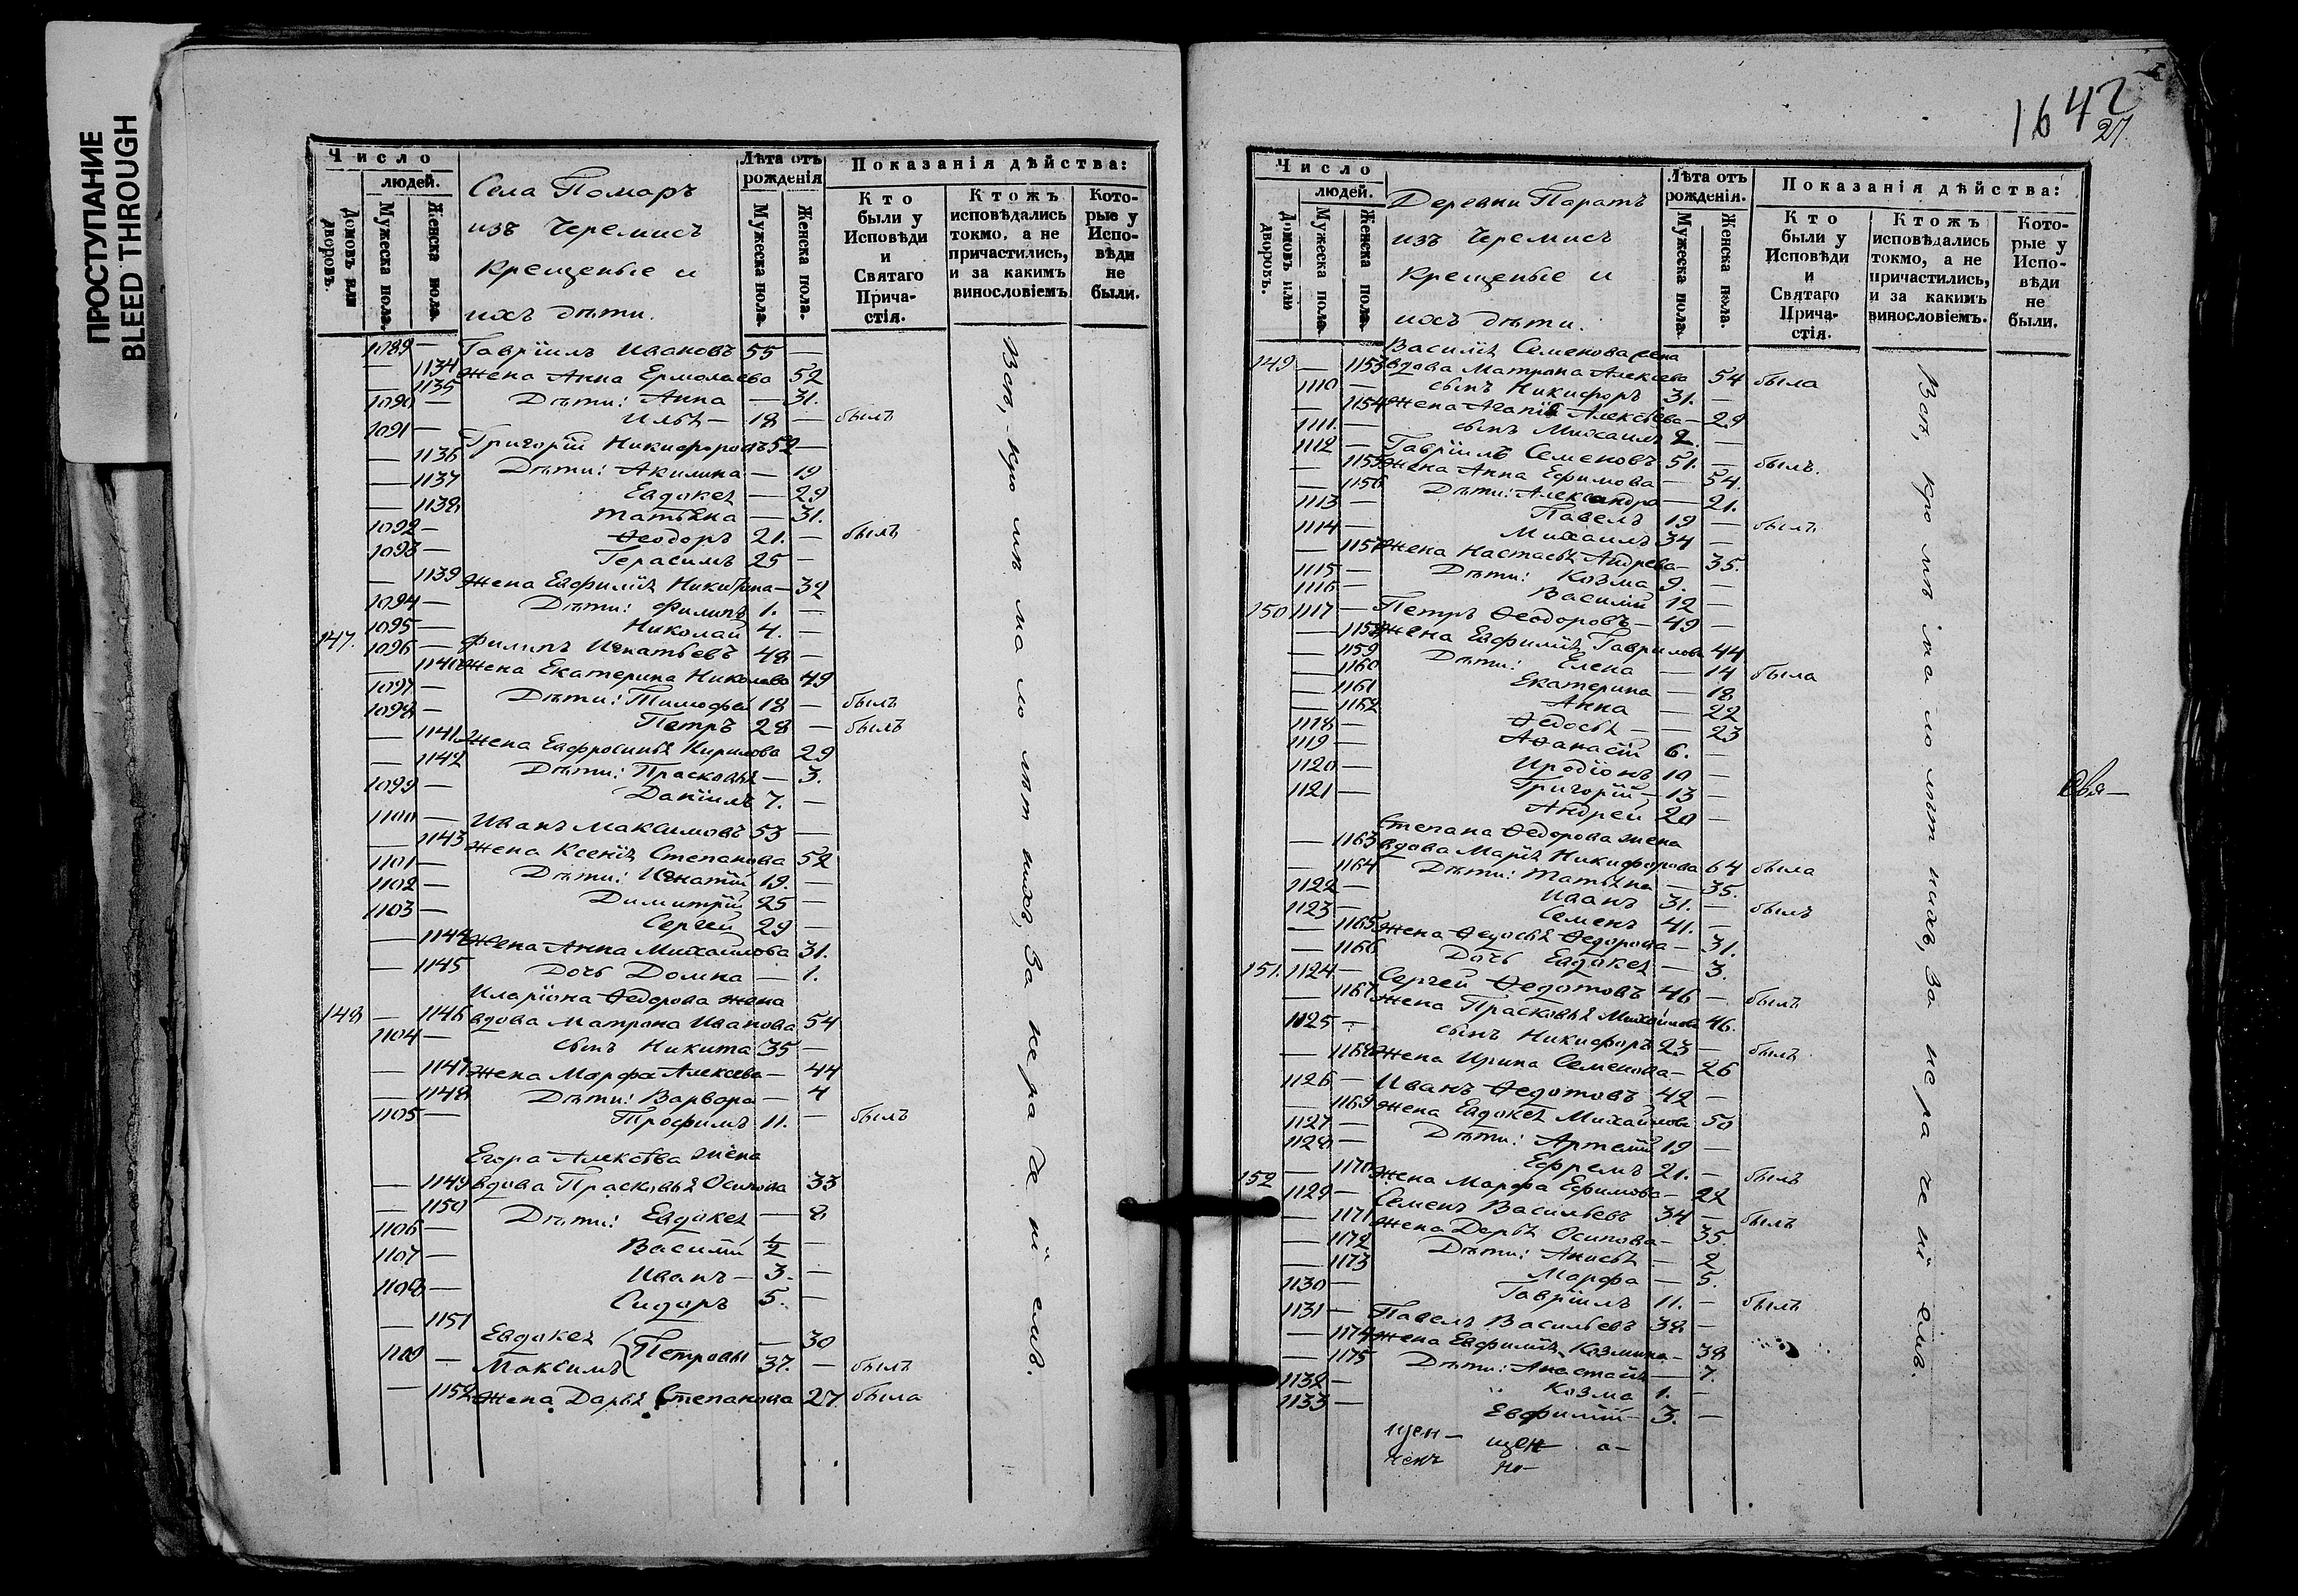 ПРОСТУПАНИЕ
BLEED THROUGH
Число
людей.
Домовъ или дворовъ.
Мужеска пола.
Женска пола.
Села Помаръ
изъ Черемисъ
Крещеные и
ихъ дѣти.
Лѣта отъ рожденія
Мужеска пола.
Женска пола.
Показанія дѣйства:
Кто были у Исповѣди и Святаго Прича-стія.
Ктожъ исповѣдались токмо, а не причастились, и за какимъ винословіемъ
Кото-рые у Испо-вѣди не были.
1089 — Гавріилъ Ивановъ 55 —
— 1134 жена Анна Ермолаева 52
— 1135 Дѣти: Анна — 31.
1090 — Илья — 18 — былъ
1091 — Григорій Никифоровъ 52 —
— 1136 Дѣти: Акилина — 19
— 1137 Евдокея — 29
— 1138 Татьяна — 31.
1092 — Ѳеодоръ 21. — былъ
1093 — Герасимъ 25 —
— 1139 жена Евфимія Никитина — 32
1094 — Дѣти: Филипъ 1. —
1095 — Николай 4. —
147. 1096 — Филипъ Игнатьевъ 48 —
— 1140 жена Екатерина Николаева 49
1097 — Дѣти: Тимофей 18 — былъ
1098 — Петръ 28 — былъ
— 1141 жена Евфросинья Кирилова 29
— 1142 Дѣти: Прасковья — 3.
1099 — Даніилъ 7. —
1100 — Иванъ Максимовъ 53 —
— 1143 жена Ксенія Степанова 52
1101 — Дѣти: Игнатій 19. —
1102 — Димитрій 25 —
1103 — Сергей 29 —
— 1144 жена Анна Михайлова 31.
— 1145 Дочь Домна — 1.
Иларіона Ѳедорова жена
148 — 1146 вдова Матрона Иванова 54
1104 — сынъ Никита 35 —
— 1147 жена Марфа Алексева — 44
— 1148 Дѣти: Варвара — 4
1105 — Трофимъ 11. — былъ
Егора Алексѣва жена
— 1149 вдова Прасковья Осипова 33
— 1150 Дѣти: Евдокея — 8
1106 — Василій ½ —
1107 — Иванъ — 3. —
1108 — Сидоръ 5. —
— 1151 Евдокея — 30
Петровы
1109 — Максимъ 37. — былъ
— 1152 жена Дарья Степанова 27 была
Всѣ, кромѣ малолѣтнихъ, за нерадѣніемъ.
1642
27.
Число
людей.
Домовъ или дворовъ.
Мужеска пола.
Женска пола.
Деревни Паратъ
изъ Черемисъ
Крещеные и
ихъ дѣти.
Лѣта отъ рожденія.
Мужеска пола.
Женска пола.
Показанія дѣйства:
Кто были у Исповѣди и Святаго Прича-стія.
Ктожъ исповѣдались токмо, а не причастились, и за какимъ винословіемъ.
Кото-рые у Испо-вѣди не были.
Василія Семенова жена
149 — 1153 вдова Матрона Алексева 54 была
1110 — сынъ Никифоръ 31. —
— 1154 жена Агапія Алексѣева — 29
1111. — сынъ Михаилъ 2. —
1112 — Гавріилъ Семеновъ 51. — былъ.
— 1155 жена Анна Ефимова — 54.
— 1156 Дѣти: Александра — 21.
1113 — Павелъ 19 — былъ
1114 — Михаилъ 34 —
— 1157 жена Настасья Андрева — 35.
1115 — Дѣти: Козма 9. —
1116 — Василій 12 —
150 1117 — Петръ Ѳеодоровъ — 49 —
— 1158 жена Евфимія Гаврилова 44
— 1159 Дѣти: Елена — 14 была
— 1160 Екатерина — 18
— 1161 Анна — 22
— 1162 Ѳедосья — 23
1118 — Аѳанасій 6. —
1119 — Иродіонъ 10 —
1120 — Григорій — 13 —
1121 — Андрей 20 —
Степана Ѳедорова жена
— 1163 вдова Марія Никифорова 64 была
— 1164 Дѣти: Татьяна — 35.
1122 — Иванъ 31. — былъ
1123 — Семенъ 41. —
— 1165 жена Ѳедосья Ѳедорова — 31.
— 1166 Дочь Евдокея — 3.
151. 1124 — Сергей Ѳедотовъ 46 — былъ
— 1167 жена Прасковья Михайлова 46.
1125 — сынъ Никифоръ 23 — былъ
— 1168 жена Ирина Семенова — 26
1126 — Иванъ Ѳедотовъ 42 —
— 1169 жена Евдокея Михайлова 50
1127 — Дѣти: Артемій 19 —
1128 — Ефремъ 21. — былъ
— 1170 жена Марфа Ефимова — 22
152 1129 — Семенъ Васильевъ 34 — былъ
— 1171 жена Дарья Осипова — 35.
— 1172 Дѣти: Анисья — 2
— 1173 Марфа — 5.
1130 — Гавріилъ 11. — былъ
1131 — Павелъ Васильевъ 38 —
— 1174 жена Евфимія Козмина — 38
— 1175 Дѣти: Анастасія — 7.
1132 — Козма 1. —
1133 — Евфимій 3. —
Всѣ, кромѣ малолѣтнихъ, за нераченіемъ.